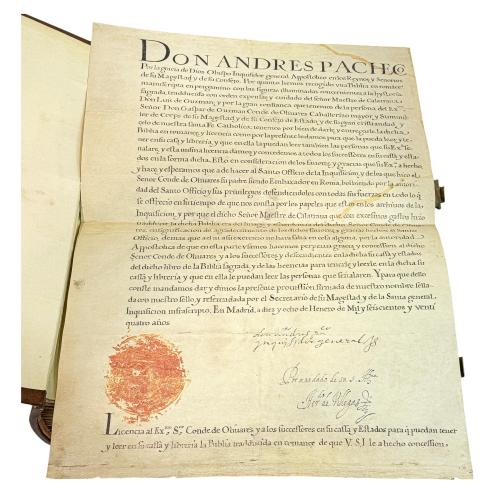 DON ANDRES PACHECO
Por la gracia de Dios Obispo Inquisidor general Apostolico en los Reynos y Senorios
de su Magestad y de su Consejo. Por quanto hemos recogido una Biblia en romance
manuscripta en pergamino con las figuras illuminadas concernientes a la hystoria
sagrada, traduzida con orden expensas y cuidado del señor Maestre de Calatrava
Don Luis de Guzman, y por la gran confianza que tenemos de la persona del Ex.mo
Señor Don Gaspar de Guzman Conde de Olivares Cavallerizo mayor y Sumiller
de Corps de su Magestad y de su Consejo de Estado, y de su gran cristiandad, y
zelo de nuestra santa Fe Catholica: tenemos por bien de darle, y entregarle la dicha
Biblia en romance, y licencia como por la presente la damos para que la pueda leer y tener
en su casa y libreria, y que en ella la puedan leer tambien las personas que su Ex.a señalare
y esta misma licencia damos y concedemos a todos los successores en su casa y estados
en la forma dicha. Esto en consideracion de los
y haze y esperamos que a de hacer al Santo Officio de la Inquisicion, y de los que hizo el
Señor Conde de Olivares su padre siendo Embaxador en Roma, bolviendo por la autoridad
del Santo Officio y sus privilegios defendiendolos con todas sus fuerzas en todo lo que
se offrecio en su tiempo de que nos consta por los papeles que estan en los archivos de la
Inquisicion, y por que el dicho Señor Maestre de Calatrava que con excesivos gastos hizo
traduzir la dicha Biblia era del linage y
Officio, demas que
Apostolica de que en esta parte usamos hacemos
Señor Conde de Olivares y a los successores y descendientes en la dicha su casa y estados
del dicho libro de la Biblia sagrada, y de las licencias para tenerle y leerle en la dicha su
casa y libreria, y que en ella le puedan leer las personas que señalaren. Y para que dello
conste mandamos dar y dimos la presente provission firmada de nuestro nombre sellada
con nuestro sello, y referendada por el Secretario de su Magestad y de la Santa general
Inquisicion infrascripto. En Madrid, a diez y ocho de Henero de Mil y seiscientos y veinti
quatro años
Inquisidor general
Por mandado de su s. Ill.ma
Licencia al Ex.mo S.r Conde de Olivares y a los successores en su casa y Estados para q puedan tener
y leer en su casa y libreria la Biblia traducida en romance de que V. S. I. le a hecho concession.